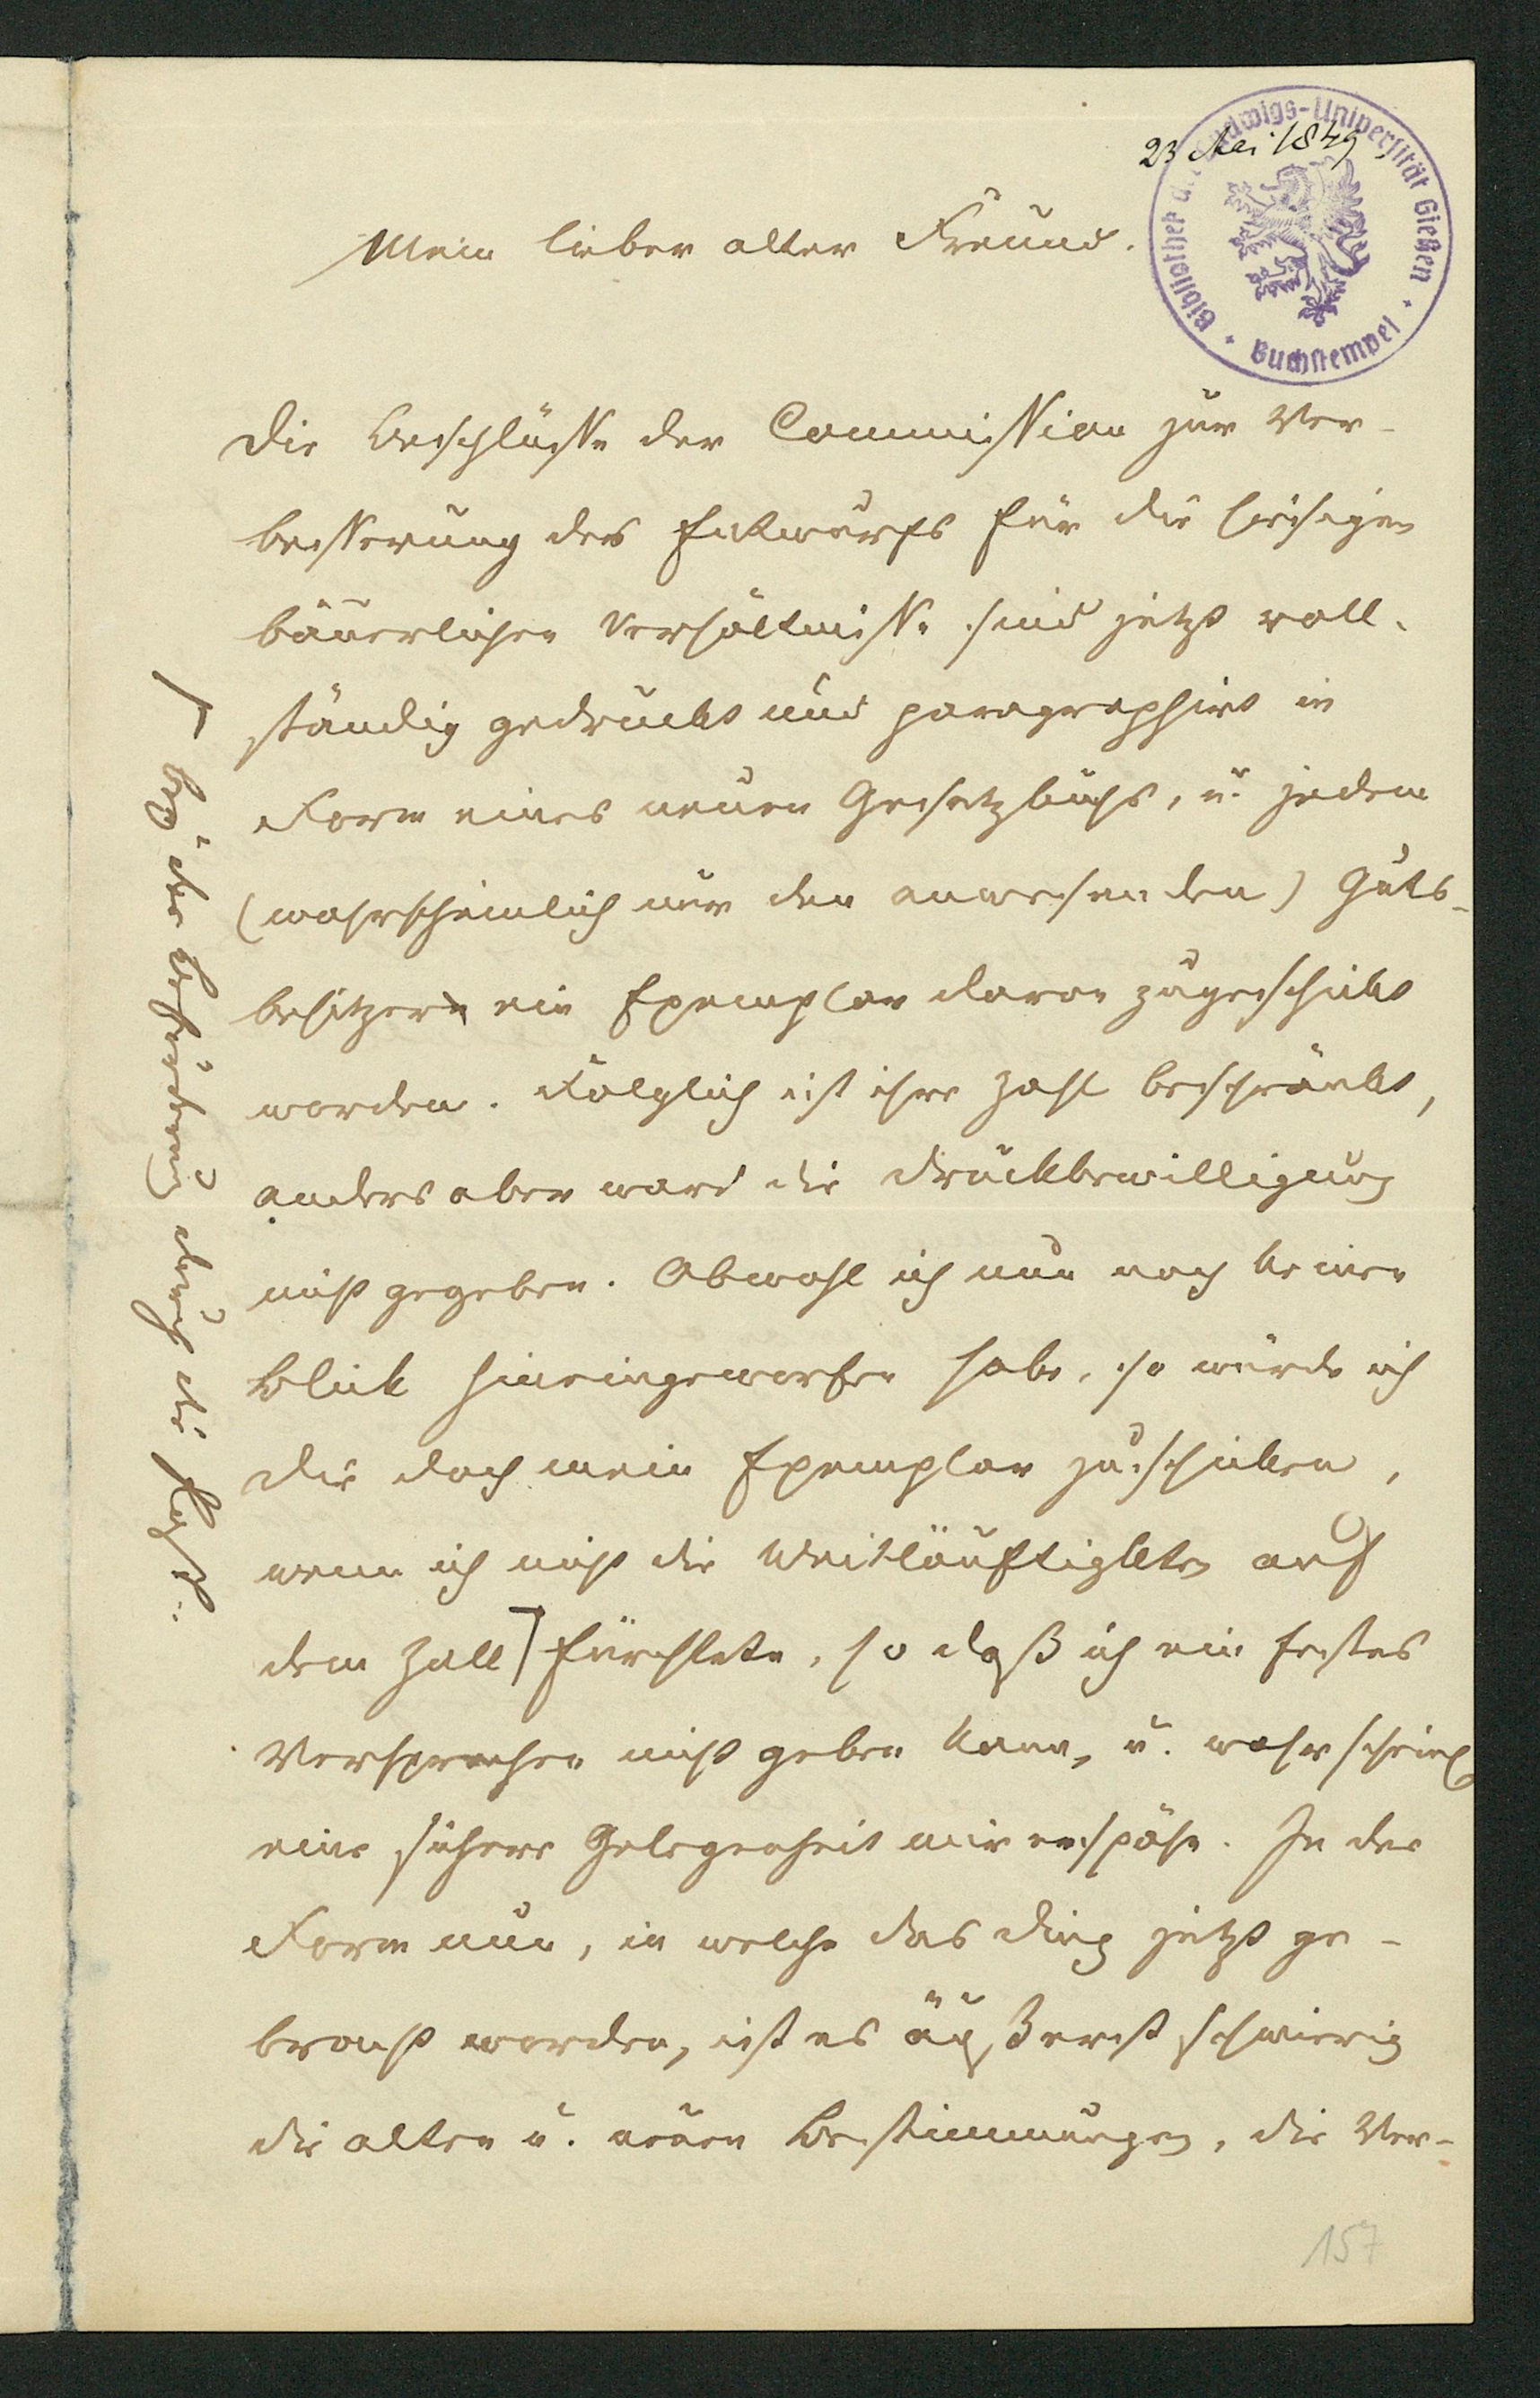 23 Mai 1849
Bibliothek d. Ludwigs-Universität Gießen
Buchstempel
Mein lieber alter Freund.
Die Beschlüsse der Commission zur Ver-
besserung des Entwurfs für die hiesigen
bäuerlichen Verhältnisse sind jetzt voll-
ständig gedruckt und paragraphirt in
Form eines neuen Gesetzbuchs, u. jedem
(wahrscheinlich nur den anwesenden) Guts-
besitzer ein Exemplar davon zugeschickt
worden. Folglich ist ihre Zahl beschränkt,
anders aber ward die Druckbewilligung
nicht gegeben. Obwohl ich nun noch keinen
Blick hineingeworfen habe, so würde ich
Dir doch mein Exemplar zuschicken,
wenn ich nicht die Weitläuftigkten auf
dem Zoll fürchtete, so daß ich ein festes
Versprechen nicht geben kann, u. wahrscheinl
eine sichere Gelegenheit mir erspähe. In der
Form nun, in welche das Ding jetzt ge-
bracht worden, ist es äußerst schwierig
die alten u. neuen Bestimmungen, die Ver-
157